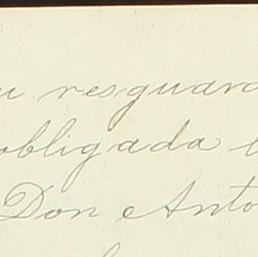 resguard
obligada
Don Anto